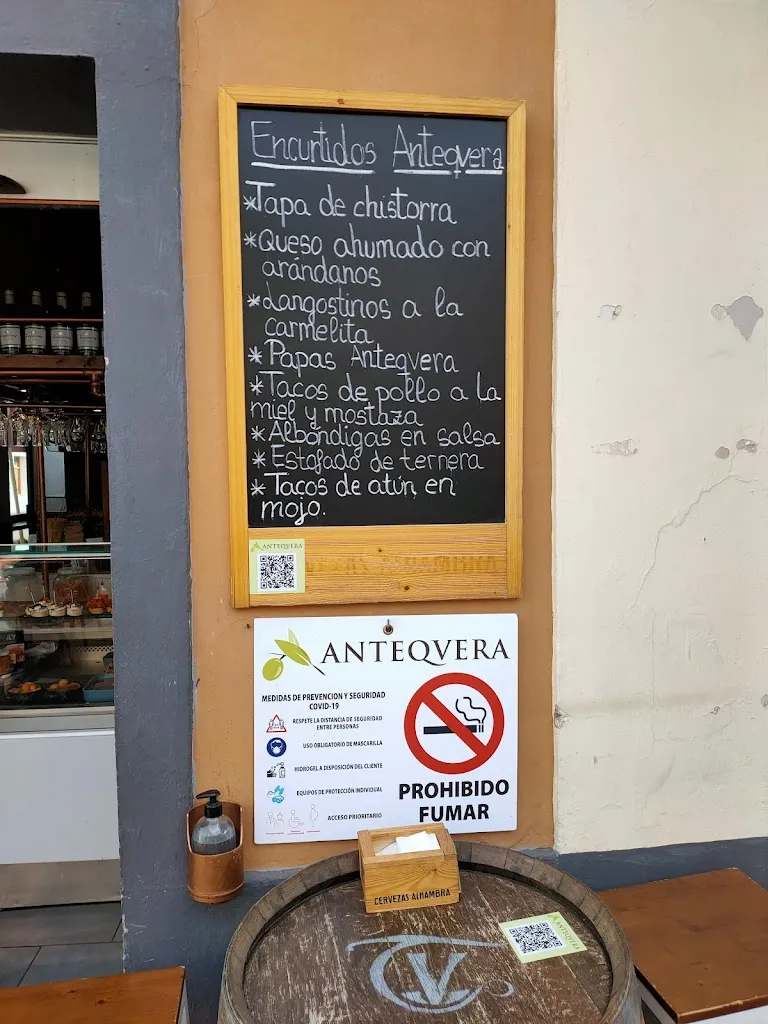 Encurtidos Anteqvera
*Tapa de chistorra
*Queso ahumado con
arándanos
*Langostinos a la
carmelita
*Papas Anteqvera
*Tacos de pollo a la
miel y mostaza
*Albóndigas en salsa
*Estofado de ternera
*Tacos de atún en
mojo.
ANTEQVERA
ANTEQVERA
MEDIDAS DE PREVENCION Y SEGURIDAD
COVID-19
RESPETE LA DISTANCIA DE SEGURIDAD
ENTRE PERSONAS
USO OBLIGATORIO DE MASCARILLA
HIDROGEL A DISPOSICIÓN DEL CLIENTE
EQUIPOS DE PROTECCIÓN INDIVIDUAL
ACCESO PRIORITARIO
PROHIBIDO
FUMAR
CERVEZAS ALHAMBRA
ANTEQVERA